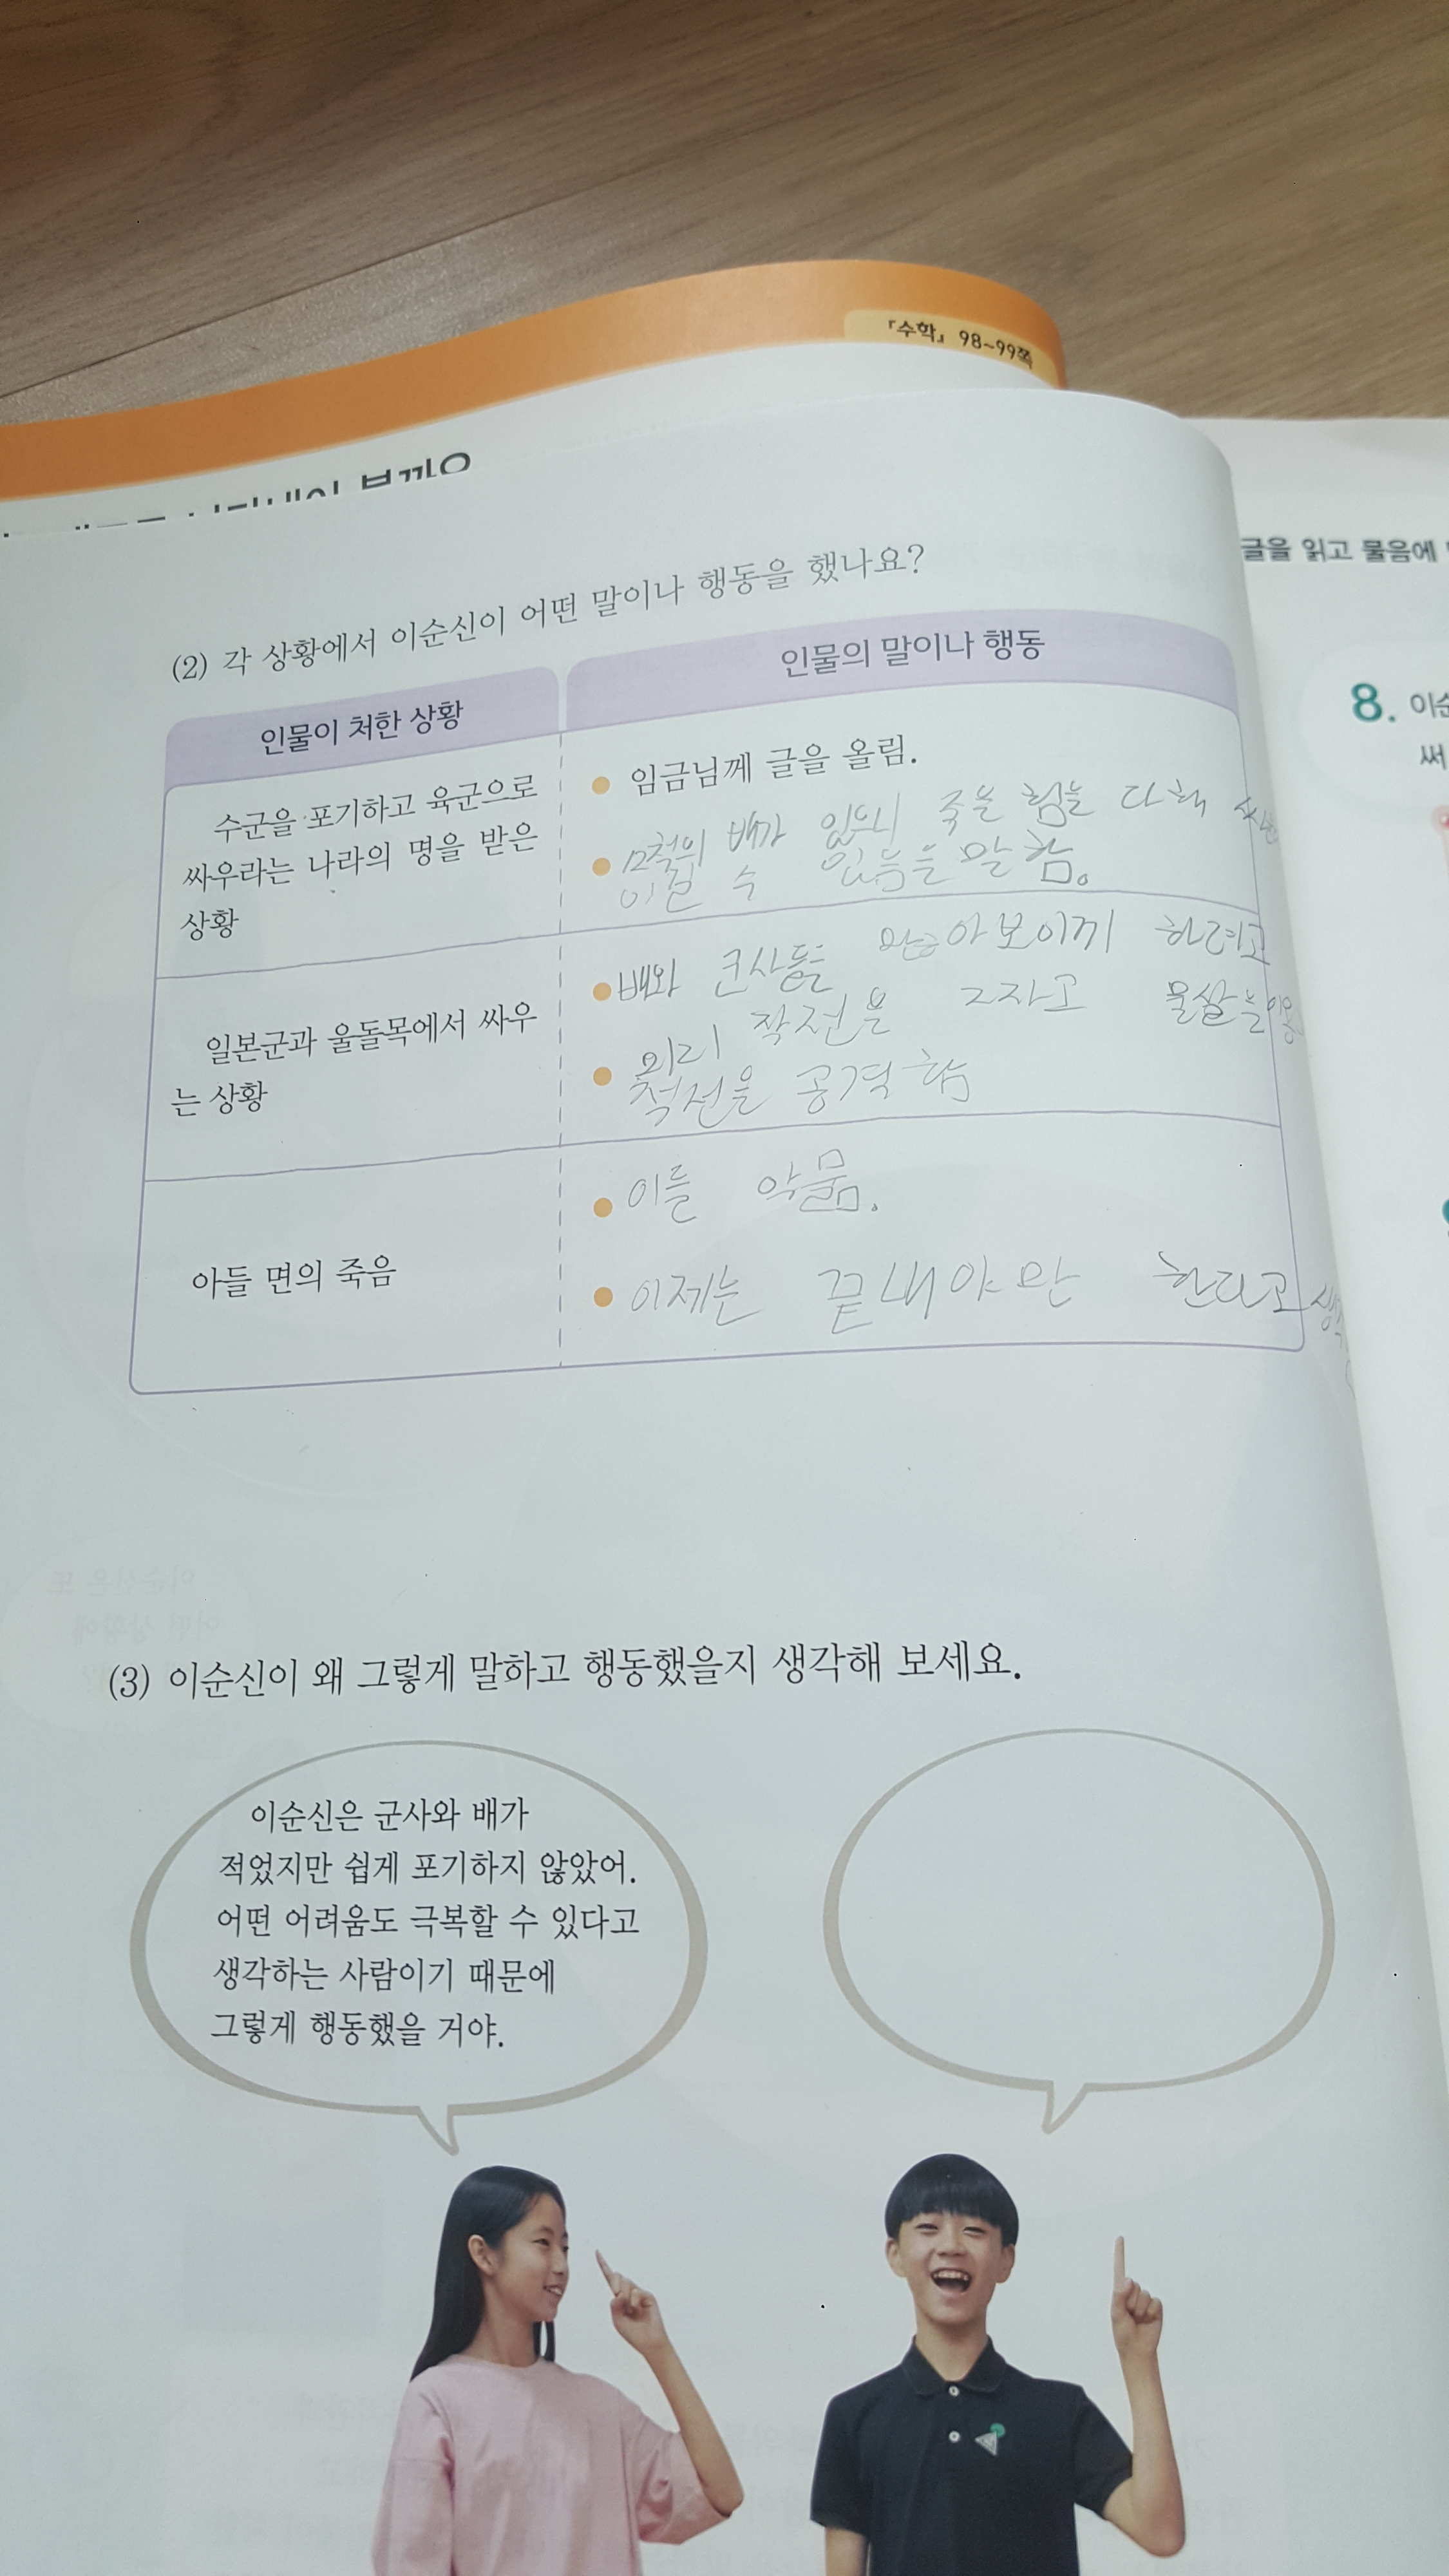 『수학』 98~99쪽
(2) 각 상황에서 이순신이 어떤 말이나 행동을 했나요?
인물이 처한 상황
인물의 말이나 행동
수군을 포기하고 육군으로
싸우라는 나라의 명을 받은
상황
임금님께 글을 올림.
12척의 배가 있으니 죽을 힘을 다해
이길 수 있음을 말함.
일본군과 울돌목에서 싸우
는 상황
배와 군사들 많아보이게 하려고
미리 작전을 물쌀을
적선을 공격함
아들 면의 죽음
이를 악뭄.
이제는 끝내야만 한다고
글을 읽고 물음에
8.
써
(3) 이순신이 왜 그렇게 말하고 행동했을지 생각해 보세요.
이순신은 군사와 배가
적었지만 쉽게 포기하지 않았어.
어떤 어려움도 극복할 수 있다고
생각하는 사람이기 때문에
그렇게 행동했을 거야.